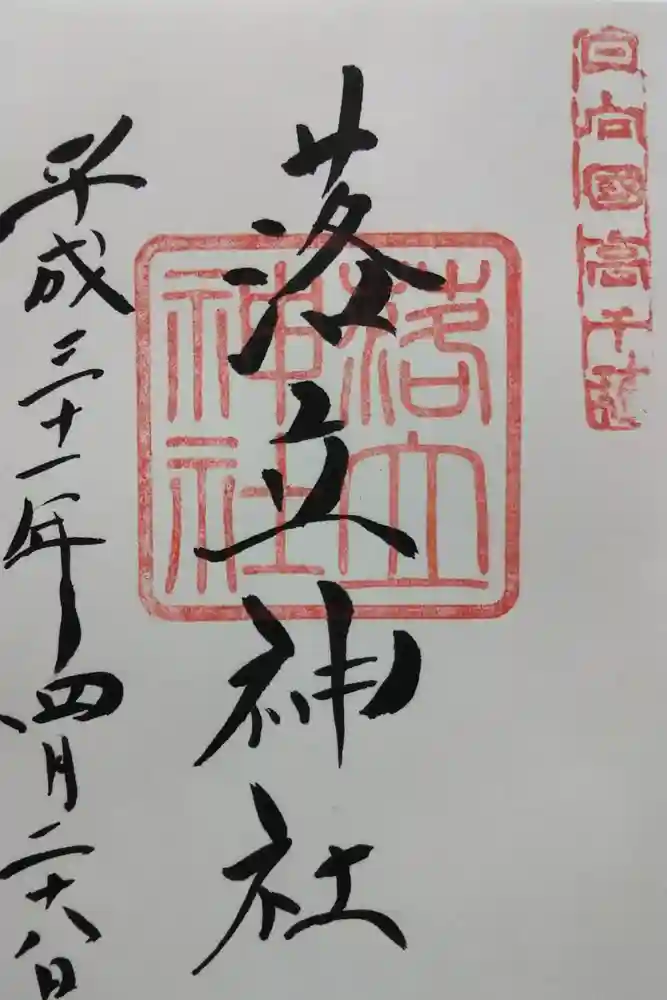 日向國高千穂
落立神社
落立
神社
平成三十一年四月二十八日